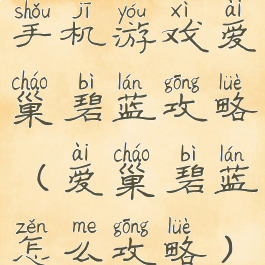 shǒu jī yóu xì ài
手机游戏爱
cháo bì lán gōng lüè
巢碧蓝攻略
ài cháo bì lán
（爱巢碧蓝
zěn me gōng lüè
怎么攻略）